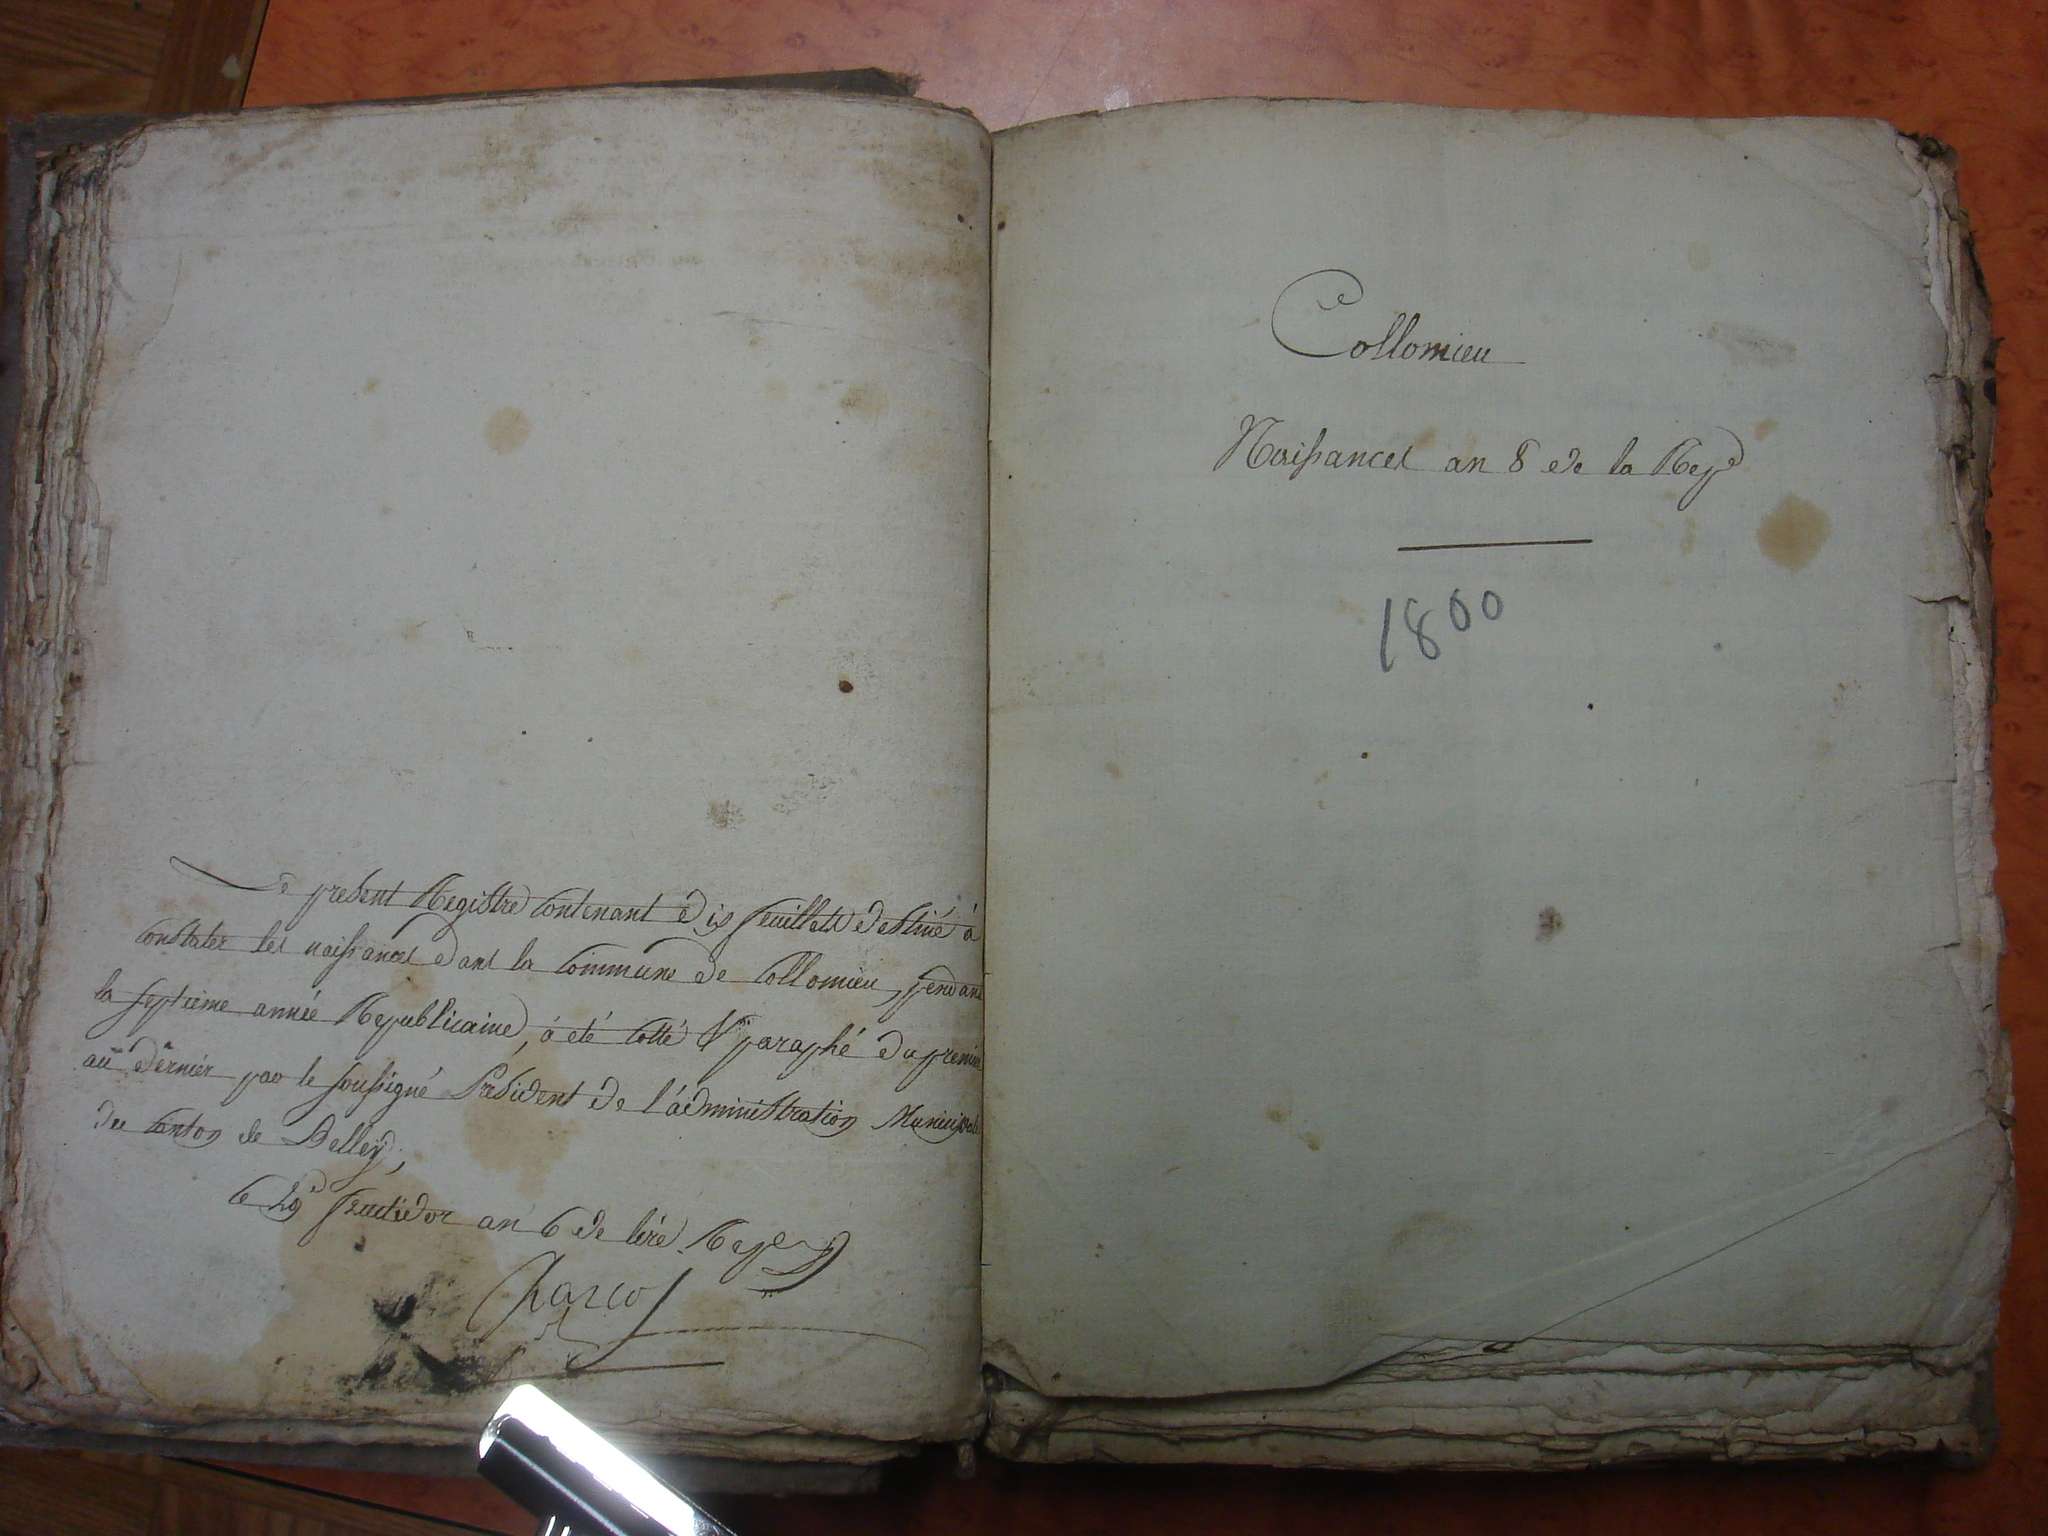 Le present Registre contenant dix feuillets destiné à
constater les naissances dans la commune de Collomieu, pendant
la septieme année Republicaine, à eté cotté & paraphé du premier
au dernier par le soussigné Président de l'administration Municipale
du canton de Belley,
le 29e fructidor an 6 de l'ère Repe
Collomieu
Naissances an 8 de la Repe
1800